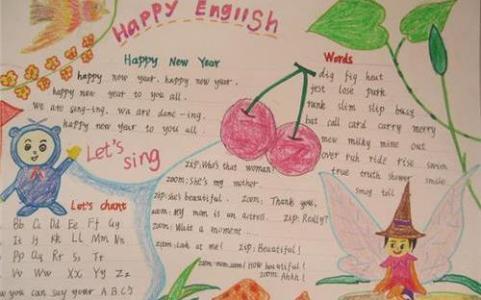 Happy EngliSh
Happy New Year
happy new year, happy new year.
happy new year to you all.
we are sing-ing, wa are danc-ing.
happy new year to you all.
Let's
sing
Words
dig fig heat
jest lose pork
rank slim slip busy
but call card carry merry
mew milky mine out
over ruh ride rise swim
true truth shower smile
smog tall
zip: Who's that woman?
zoom: She's my mother.
zip: she's beautiful. zoom: Thank you.
zoom: My mom is an actress. zip: Really?
zoom: Wait a moment....
zoom: Look at me! zip: Beautiful!
zoom: mom, mom! How beautiful!
zoom: Ahhh!
Let's chant
Bb Cc Dd Ee Ff Gg
Ii Jj Kk Ll Mm Nn
Pp Qq Rr Ss Tt
Vv Ww Xx Yy Zz
you can say your A.B.C's